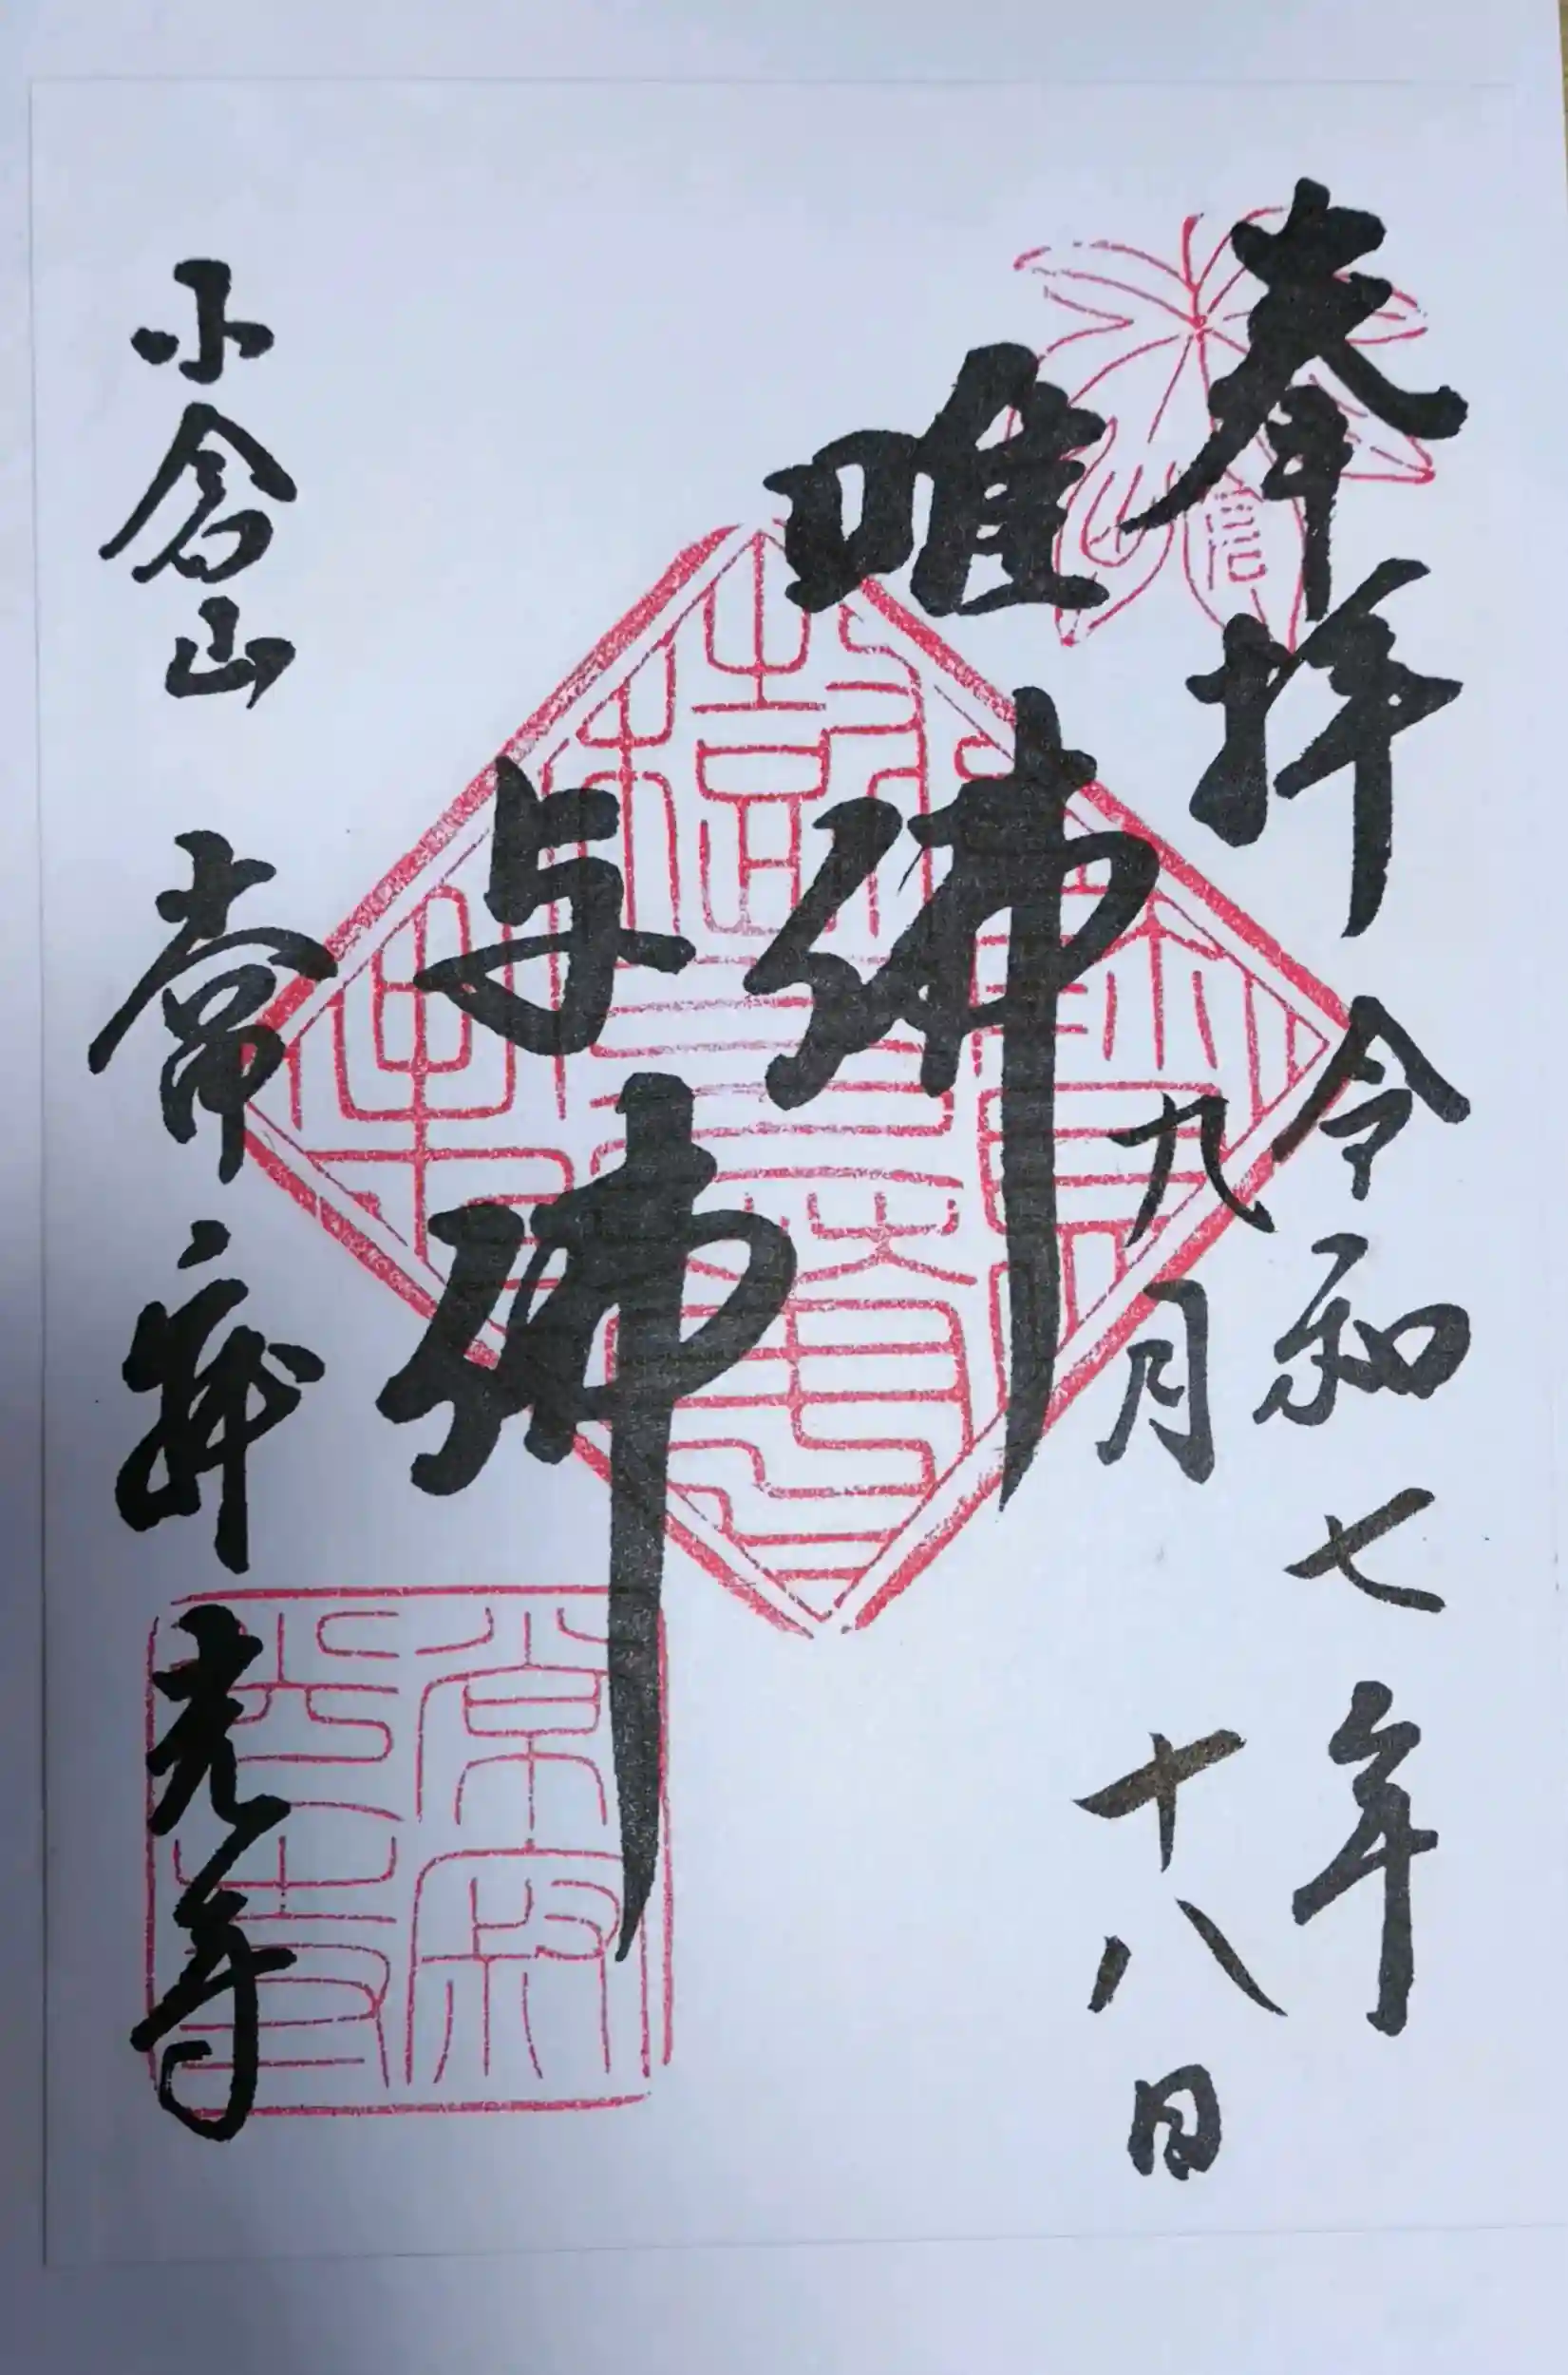 奉拝
令和七年
九月十八日
唯佛
与佛
小倉山
常寂光寺